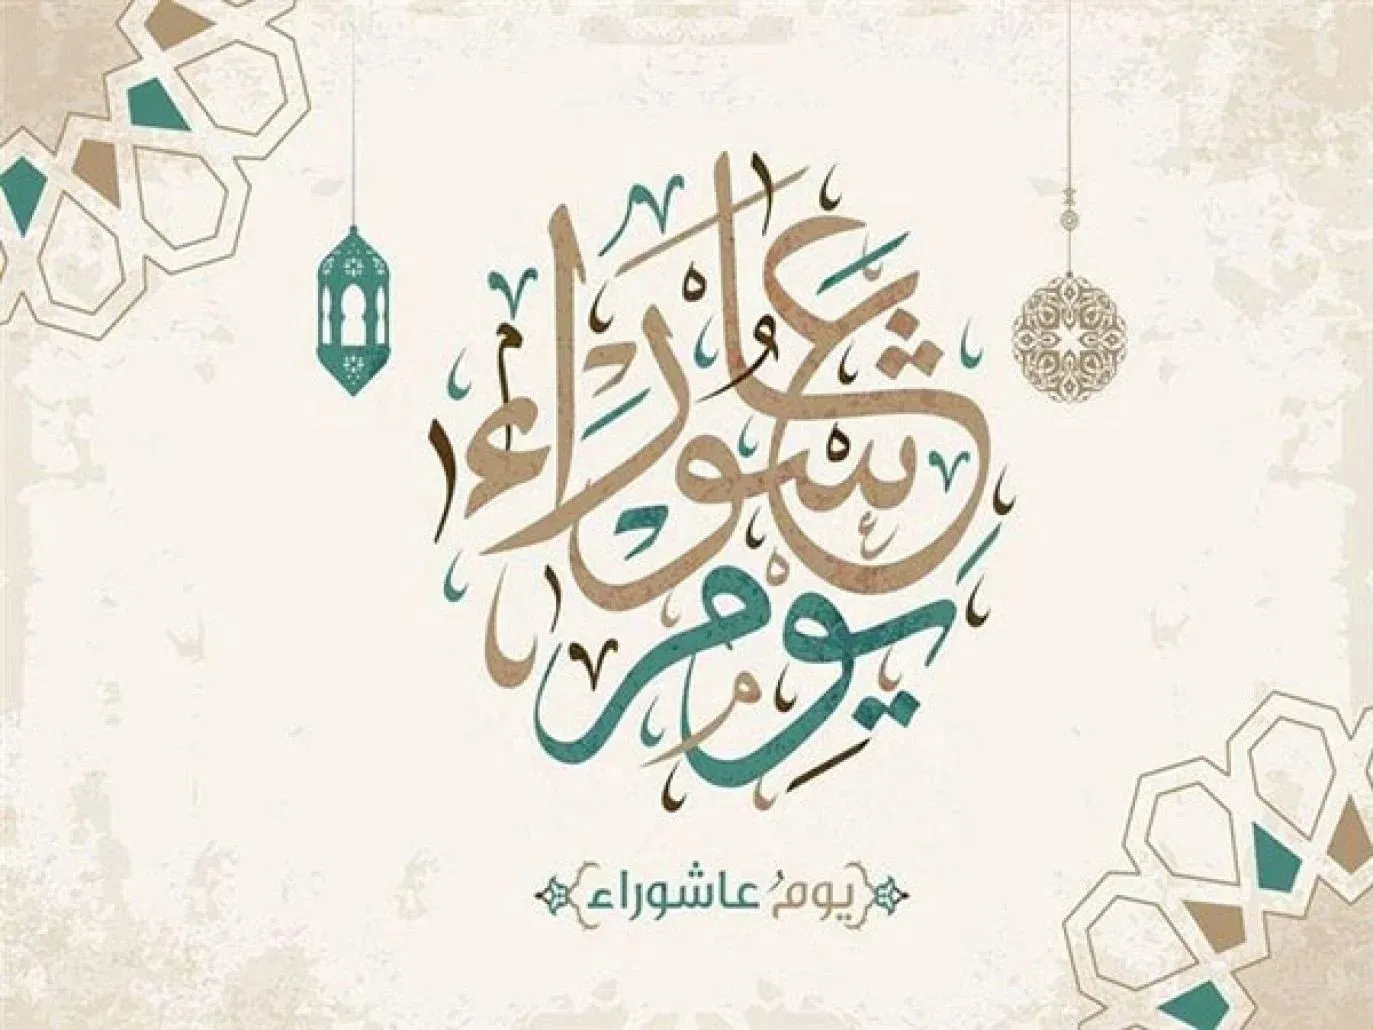 يوم عاشوراء
يومُ عاشوراء